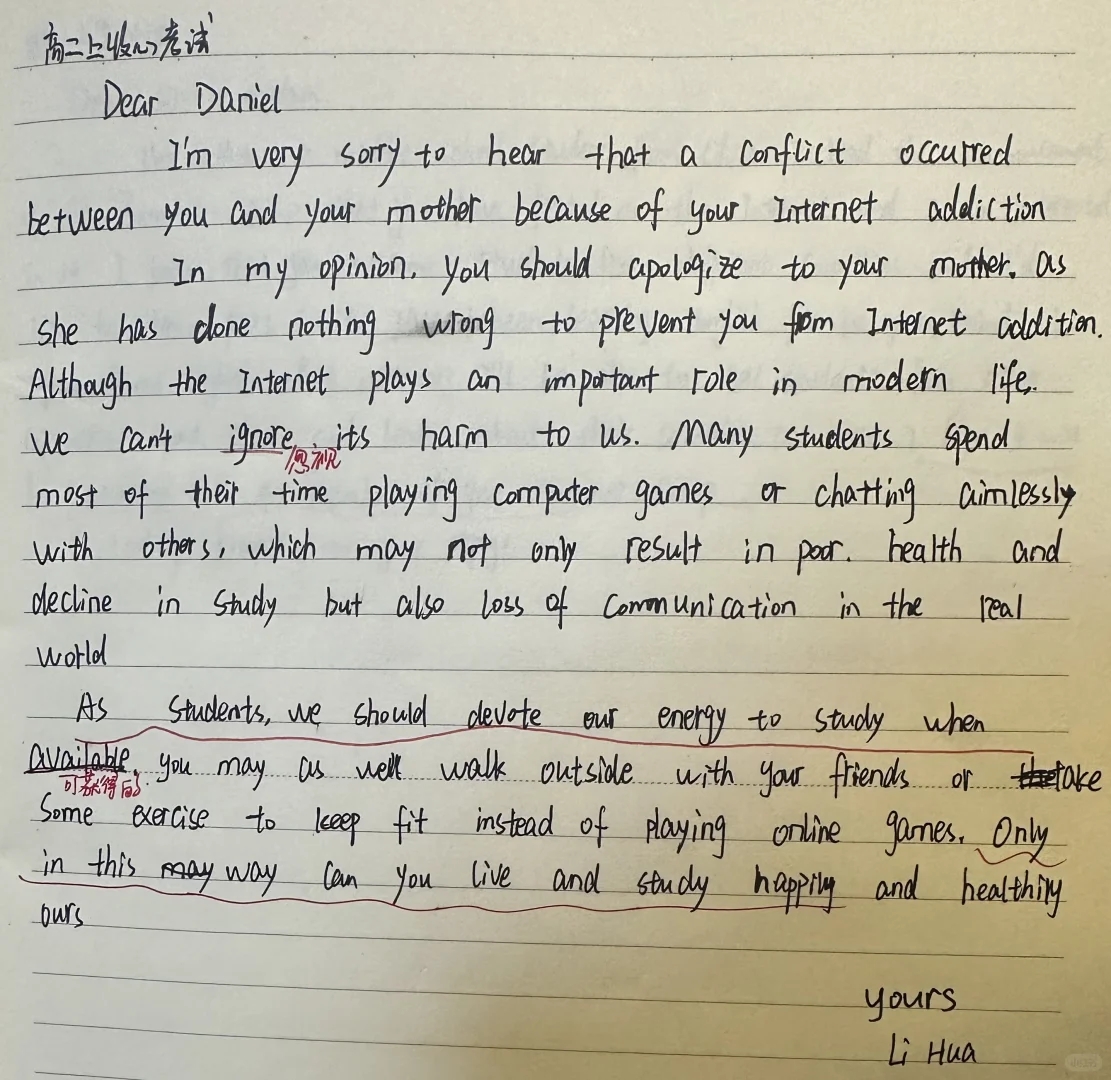 高二上收心考试
Dear Daniel
I'm very sorry to hear that a conflict occurred
between you and your mother because of your Internet addiction
In my opinion, you should apologize to your mother, as
she has done nothing wrong to prevent you from Internet addition.
Although the Internet plays an important role in modern life.
we can't ignore its harm to us. Many students spend
忽视
most of their time playing computer games or chatting aimlessly
with others, which may not only result in poor. health and
decline in study but also loss of communication in the real
world
As students, we should devote our energy to study when
available, you may as well walk outside with your friends or take
可获得的
some exercise to keep fit instead of playing online games. Only
in this may way can you live and study happily and healthily
ours
yours
Li Hua
小红书